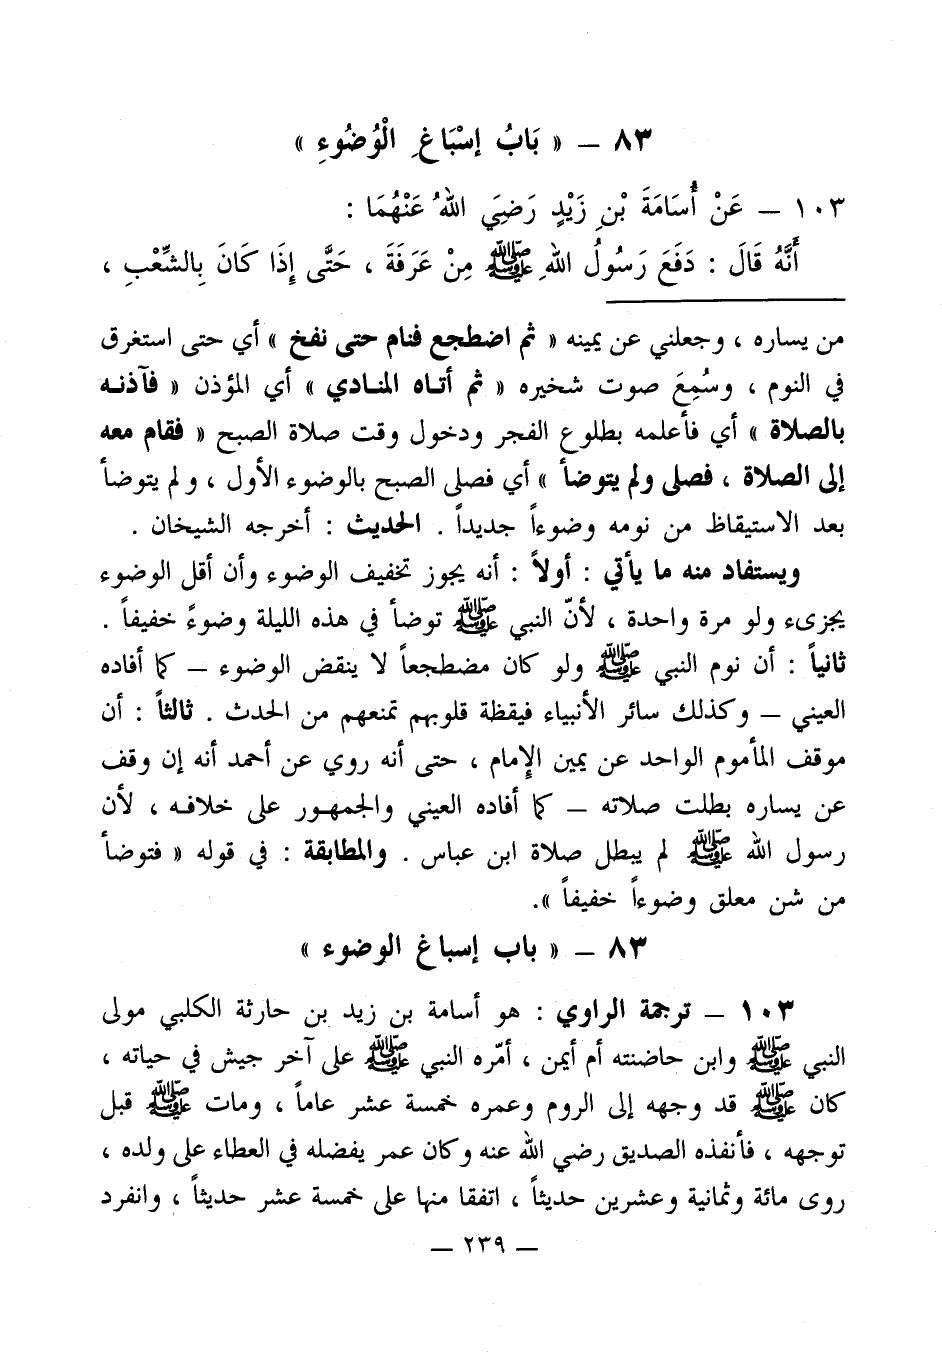 ٨٣ – « بَابُ إِسْبَاغِ الْوُضُوءِ »
١٠٣ – عَنْ أُسَامَةَ بْنِ زَيْدٍ رَضِيَ اللهُ عَنْهُمَا :
أَنَّهُ قَالَ : دَفَعَ رَسُولُ اللهِ ﷺ مِنْ عَرَفَةَ ، حَتَّى إِذَا كَانَ بِالشِّعْبِ ،
من يساره ، وجعلني عن يمينه « ثم اضطجع فنام حتى نفخ » أي حتى استغرق
في النوم ، وسُمِعَ صوت شخيره « ثم أتاه المنادي » أي المؤذن « فآذنه
بالصلاة » أي فأعلمه بطلوع الفجر ودخول وقت صلاة الصبح « فقام معه
إلى الصلاة ، فصلى ولم يتوضأ » أي فصلى الصبح بالوضوء الأول ، ولم يتوضأ
بعد الاستيقاظ من نومه وضوءاً جديداً . الحديث : أخرجه الشيخان .
ويستفاد منه ما يأتي : أولاً : أنه يجوز تخفيف الوضوء وأن أقل الوضوء
يجزىء ولو مرة واحدة ، لأنّ النبي ﷺ توضأ في هذه الليلة وضوءً خفيفاً .
ثانياً : أن نوم النبي ﷺ ولو كان مضطجعاً لا ينقض الوضوء – كما أفاده
العيني – وكذلك سائر الأنبياء فيقظة قلوبهم تمنعهم من الحدث . ثالثاً : أن
موقف المأموم الواحد عن يمين الإمام ، حتى أنه روي عن أحمد أنه إن وقف
عن يساره بطلت صلاته – كما أفاده العيني والجمهور على خلافه ، لأن
رسول الله ﷺ لم يبطل صلاة ابن عباس . والمطابقة : في قوله « فتوضأ
من شن معلق وضوءاً خفيفاً ».
٨٣ – « باب إسباغ الوضوء »
١٠٣ – ترجمة الراوي : هو أسامة بن زيد بن حارثة الكلبي مولى
النبي ﷺ وابن حاضنته أم أيمن ، أمّره النبي ﷺ على آخر جيش في حياته ،
كان ﷺ قد وجهه إلى الروم وعمره خمسة عشر عاماً ، ومات ﷺ قبل
توجهه ، فأنفذه الصديق رضي الله عنه وكان عمر يفضله في العطاء على ولده ،
روى مائة وثمانية وعشرين حديثاً ، اتفقا منها على خمسة عشر حديثاً ، وانفرد
– ٢٣٩ –